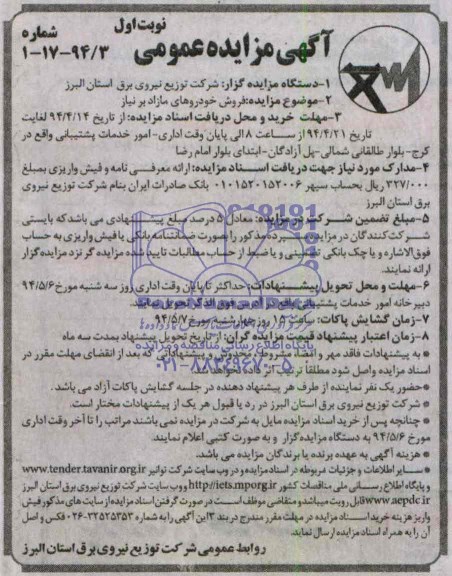 نوبت اول
آگهی مزایده عمومی
شماره
۱-۱۷-۹۴/۳
۱-دستگاه مزایده گزار: شرکت توزیع نیروی برق استان البرز
۲-موضوع مزایده:فروش خودروهای مازاد بر نیاز
۳-مهلت خرید و محل دریافت اسناد مزایده: از تاریخ ۹۴/۴/۱۴ لغایت
تاریخ ۹۴/۴/۲۱ از ساعت ۸ الی پایان وقت اداری- امور خدمات پشتیبانی واقع در
کرج- بلوار طالقانی شمالی-پل آزادگان-ابتدای بلوار امام رضا
۴-مدارک مورد نیاز جهت دریافت اسناد مزایده: ارائه معرفی نامه و فیش واریزی بمبلغ
۳۲۷/۰۰۰ ریال بحساب سپهر ۰۱۰۱۵۲۰۱۵۲۰۰۶ بانک صادرات ایران بنام شرکت توزیع نیروی
برق استان البرز
۵-مبلغ تضمین شرکت در مزایده: معادل ۵ درصد مبلغ پیشنهادی می باشد که بایستی
شرکت کنندگان در مزایده سپرده مذکور را بصورت ضمانتنامه بانکی یا فیش واریزی به حساب
فوق الاشاره و یا چک بانکی تضمینی و یا ضبط از حساب مطالبات تایید شده مزایده گر نزد مزایده گزار
ارائه نمایند.
۶-مهلت و محل تحویل پیشنهادات: حداکثر تا پایان وقت اداری روز سه شنبه مورخ ۹۴/۵/۶
دبیرخانه امور خدمات پشتیبانی واقع در آدرس فوق الذکر تحویل نمایند.
۷-زمان گشایش پاکات: ساعت ۱۵ روز چهارشنبه مورخ ۹۴/۵/۷
۸-زمان اعتبار پیشنهاد قیمت مزایده گران: از تاریخ تحویل پیشنهاد بمدت سه ماه
*به پیشنهادات فاقد مهر و امضا، مشروط، مخدوش و پیشنهاداتی که بعد از انقضای مهلت مقرر در
اسناد مزایده واصل شود مطلقاً ترتیب اثر داده نخواهد شد.
*حضور یک نفر نماینده از طرف هر پیشنهاد دهنده در جلسه گشایش پاکات آزاد می باشد.
*شرکت توزیع نیروی برق استان البرز در رد یا قبول هر یک از پیشنهادات مختار است.
*چنانچه پس از خرید اسناد مزایده مایل به شرکت در مزایده نمی باشند مراتب را تا آخر وقت اداری
مورخ ۹۴/۵/۶ به دستگاه مزایده گزار و به صورت کتبی اعلام نمایند.
*هزینه آگهی به عهده برنده یا برندگان مزایده می باشد.
*سایر اطلاعات و جزئیات مربوطه در اسناد مزایده و در وب سایت شرکت توانیر www.tender.tavanir.org.ir
و پایگاه اطلاع رسانی ملی مناقصات کشور http://iets.mporg.ir و وب سایت شرکت توزیع نیروی برق استان البرز
www.aepdc.ir قابل رویت میباشد و متقاضی موظف است در صورت گرفتن اسناد مزایده از سایت های مذکور فیش
واریز هزینه خرید اسناد مزایده در مهلت مقرر مندرج در بند ۳ این آگهی را به شماره ۳۲۵۲۵۳۵۳-۰۲۶ فکس و اصل
آن را به همراه اسناد مزایده ارسال نماید.
روابط عمومی شرکت توزیع نیروی برق استان البرز
پایگاه اطلاع رسانی مناقصه و مزایده
۰۲۱-۸۸۳۴۹۶۷۰-۵